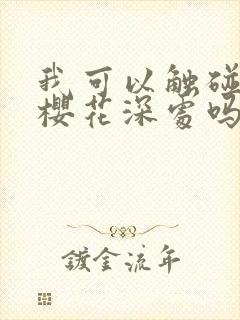 我可以触碰
樱花深处吗
镀金流年